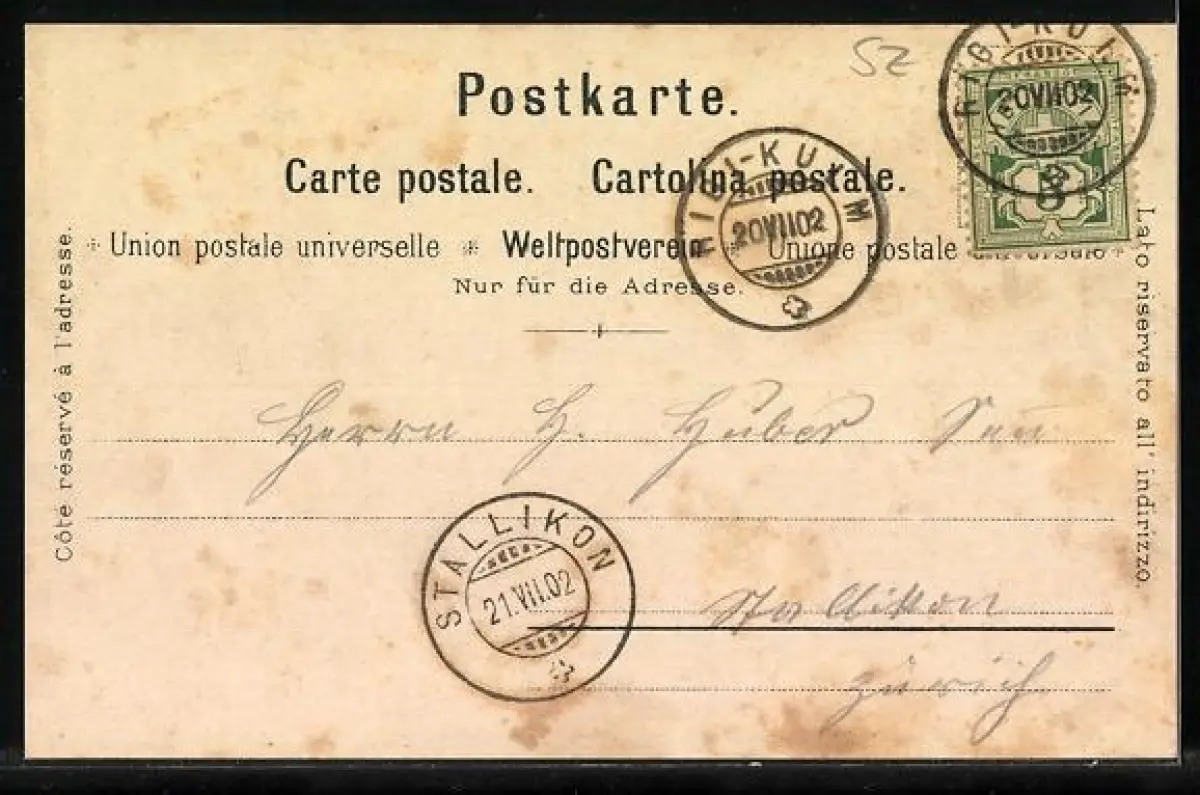 SZ
Postkarte.
Carte postale. Cartolina postale.
Union postale universelle * Weltpostverein * Unione postale universale
Nur für die Adresse.
Côté réservé à l'adresse.
Lato riservato all' indirizzo.
RIGI-KULM
20VII02
5
RIGI-KULM
20VII02
Herrn H. Huber Sen
STALLIKON
21.VII.02
Stallikon
Zürich